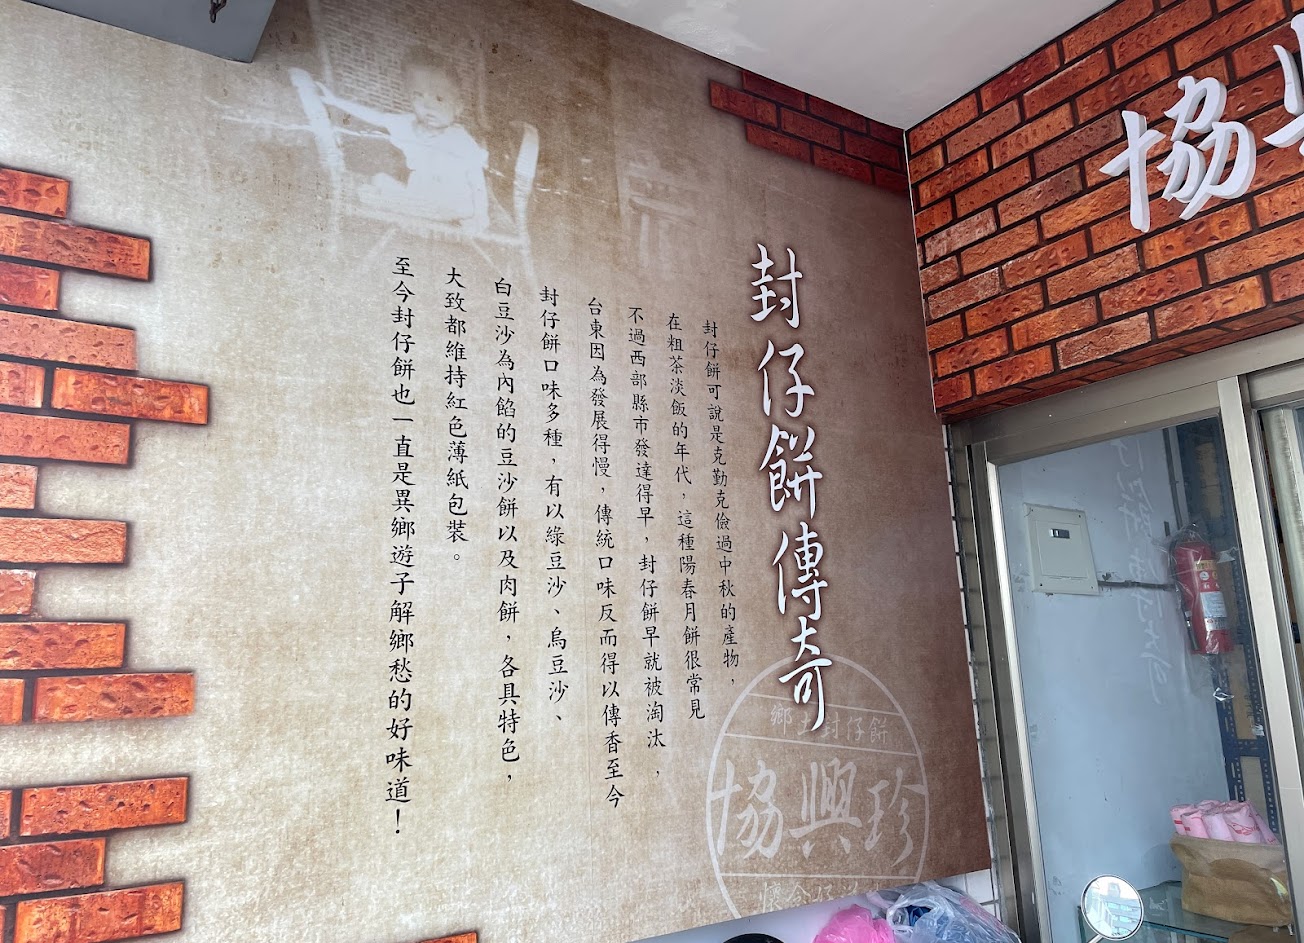 協興
封仔餅傳奇
封仔餅可說是克勤克儉過中秋的產物，
在粗茶淡飯的年代，這種陽春月餅很常見
不過西部縣市發達得早，封仔餅早就被淘汰，
台東因為發展得慢，傳統口味反而得以傳香至今
封仔餅口味多種，有以綠豆沙、烏豆沙、
白豆沙為內餡的豆沙餅以及肉餅，各具特色，
大致都維持紅色薄紙包裝。
至今封仔餅也一直是異鄉遊子解鄉愁的好味道！
鄉土封仔餅
協興珍
懷念